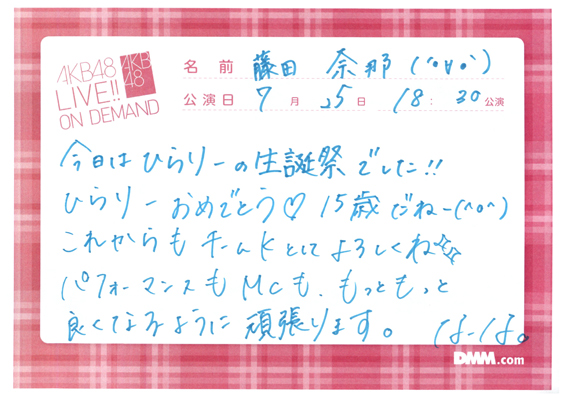 AKB48
LIVE!!
ON DEMAND
AKB
48
名前 藤田 奈那 (*°∀°*)
公演日 7月25日 18:30公演
今日はひらりーの生誕祭でした!!
ひらりーおめでとう♡ 15歳だねー(^o^)
これからもチームKとしてよろしくね☆☆
パフォーマンスもMCも、もっともっと
良くなるように頑張ります。 なーな。
DMM.com